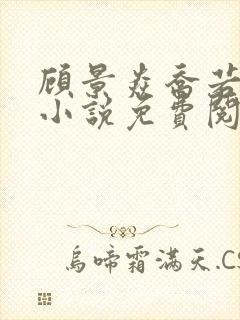 顾景炎乔若
小说免费阅
乌啼霜满天.CS